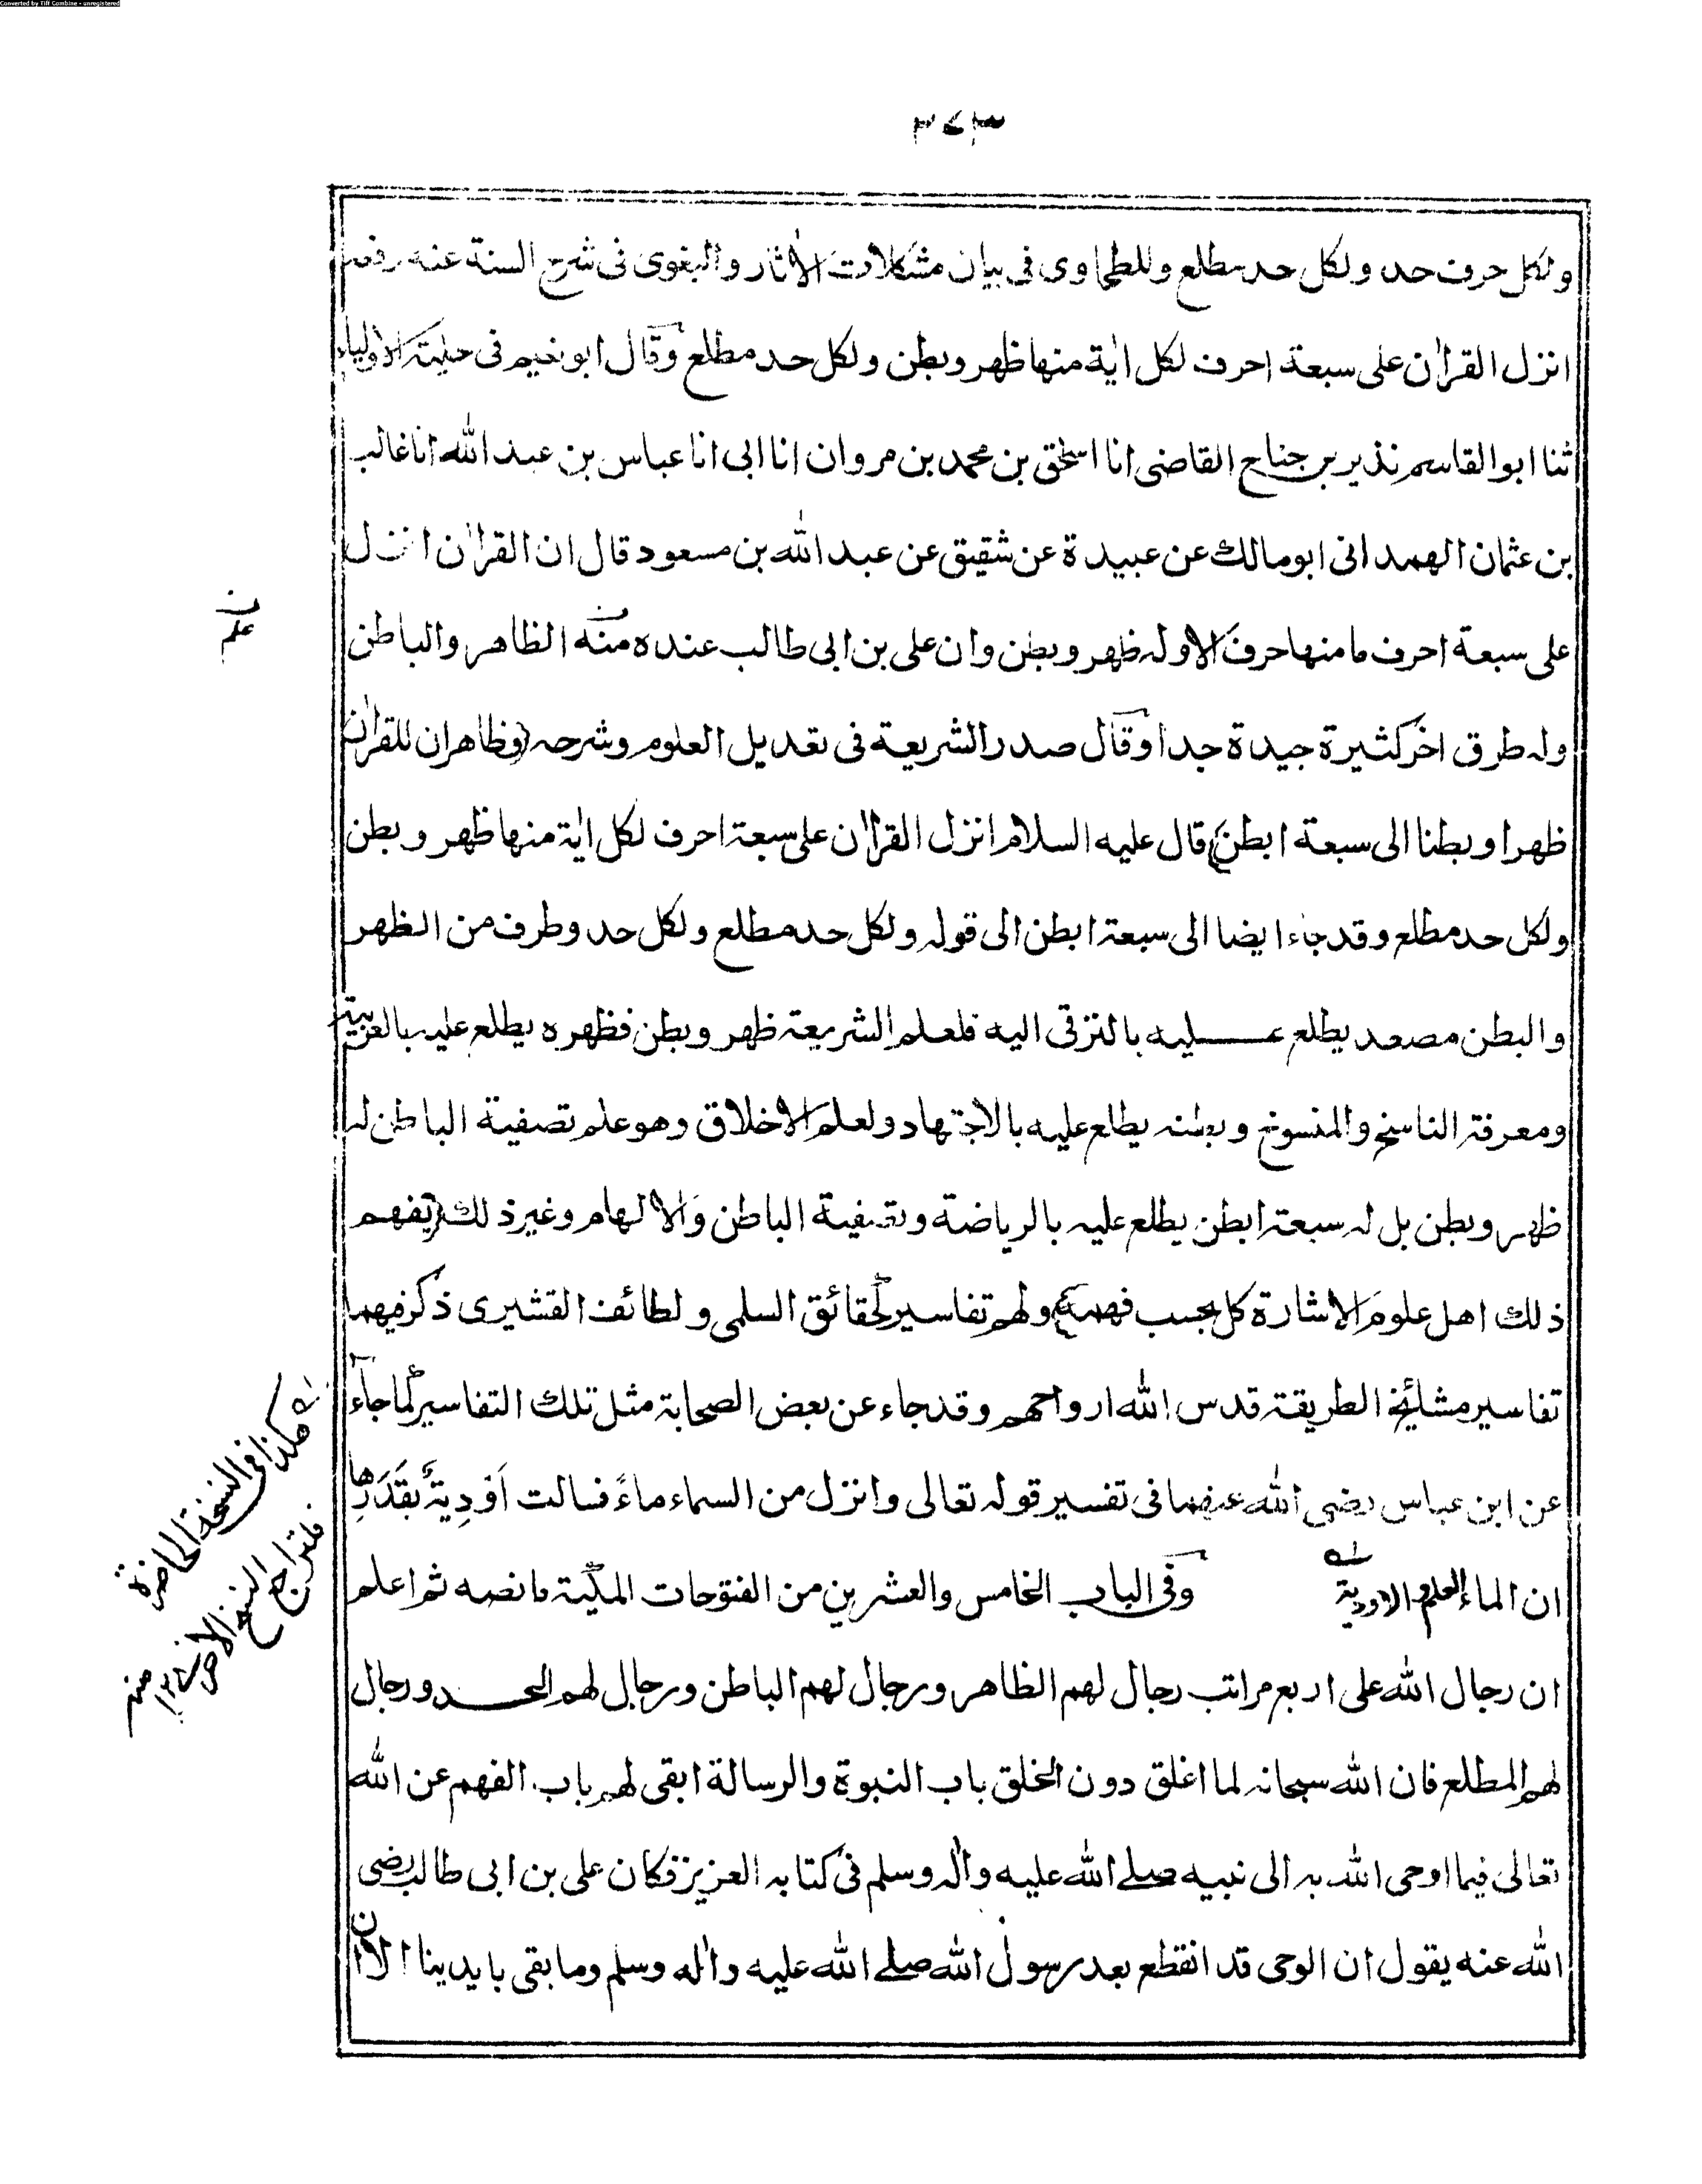 Converted by Tiff Combine - unregistered
٣٧٣
ولكل حرف حد ولكل حد مطلع وللطحاوى فى بيان مشكلات الاثار والبغوى فى شرح السنة عنه رفعه
انزل القراٰن على سبعة احرف لكل اٰية منها ظهر وبطن ولكل حد مطلع وقال ابو نعيم فى حلية الاولياء
ثنا ابو القاسم نذير بن جناح القاضى انا اسحٰق بن محمد بن مروان انا ابى انا عباس بن عبد الله انا غالب
بن عثمان الهمدانى ابو مالك عن عبيدة عن شقيق عن عبد الله بن مسعود قال ان القراٰن انزل
على سبعة احرف ما منها حرف الا وله ظهر وبطن وان على بن ابى طالب عنده منه الظاهر والباطن
ن
علم
وله طرق اخر كثيرة جيدة جدا وقال صدر الشريعة فى تعديل العلوم وشرحه (وظاهر ان للقراٰن
ظهرا وبطنا الى سبعة ابطن) قال عليه السلام انزل القراٰن على سبعة احرف لكل اٰية منها ظهر وبطن
ولكل حد مطلع وقد جاء ايضا الى سبعة ابطن الى قوله ولكل حد مطلع ولكل حد وطرف من الظهر
والبطن مصعد يطلع عليه بالترقى اليه فلعلم الشريعة ظهر وبطن فظهره يطلع عليه بالعربية
ومعرفة الناسخ والمنسوخ وبطنه يطلع عليه بالاجتهاد ولعلم الاخلاق وهو علم تصفية الباطن له
ظهر وبطن بل له سبعة ابطن يطلع عليه بالرياضة وتصفية الباطن والالهام وغير ذلك (يفهم
ذلك اهل علوم الاشارة كل بحسب فهمه) ولهم تفاسير كحقائق السلمى ولطائف القشيرى ذكر فيهما
تفاسير مشائخ الطريقة قدس الله ارواحهم وقد جاء عن بعض الصحابة مثل تلك التفاسير كما جاء
عن ابن عباس رضى الله عنهما فى تفسير قوله تعالى وانزل من السماء ماءً فسالت اَوْدِيَةٌ بِقَدَرِها
ان الماء العلم والاودية وفى الباب الخامس والعشرين من الفتوحات المكية ما نصه ثم اعلم
هكذا فى النسخة الحاضرة
فلتراجع النسخ الاخرى ١٢ منه
ان رجال الله على اربع مراتب رجال لهم الظاهر ورجال لهم الباطن ورجال لهم الحد ورجال
لهم المطلع فان الله سبحانه لما اغلق دون الخلق باب النبوة والرسالة ابقى لهم باب الفهم عن الله
تعالى فيما اوحى الله به الى نبيه صلے الله عليه واٰله وسلم فى كتابه العزيز فكان على بن ابى طالب رضى
الله عنه يقول ان الوحى قد انقطع بعد رسول الله صلے الله عليه واٰله وسلم وما بقى بايدينا الا ان